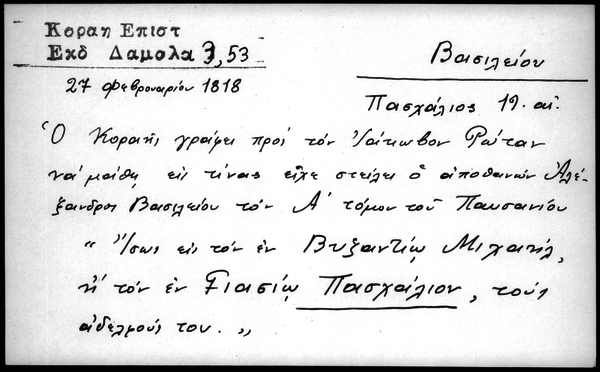 Κοραη Επιστ
Εκδ Δαμαλα 3, 53
Βασιλείου
27 Φεβρουαρίου 1818
Πασχάλιος 19. αἰ.
Ὁ Κοραῆς γράφει πρὸς τὸν Ἰάκωβον Ρώταν
νά μάθῃ εἰς τίνας εἶχε στείλει ὁ ἀποθανών Ἀλέ-
ξανδρος Βασιλείου τόν Α΄ τόμον τοῦ Παυσανίου
" Ἴσως εἰς τόν ἐν Βυζαντίῳ Μιχαήλ,
ἤ τόν ἐν Γιασίῳ Πασχάλιον, τούς
ἀδελφούς του. "